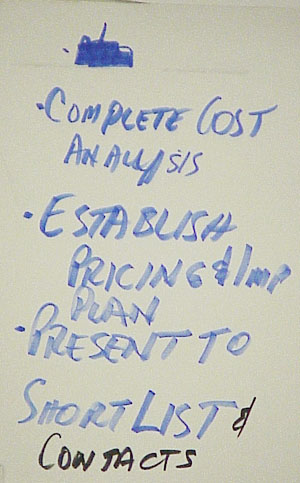 ·COMPLETE COST
ANALYSIS
·ESTABLISH
PRICING & IMP
PLAN
·PRESENT TO
SHORT LIST &
CONTACTS